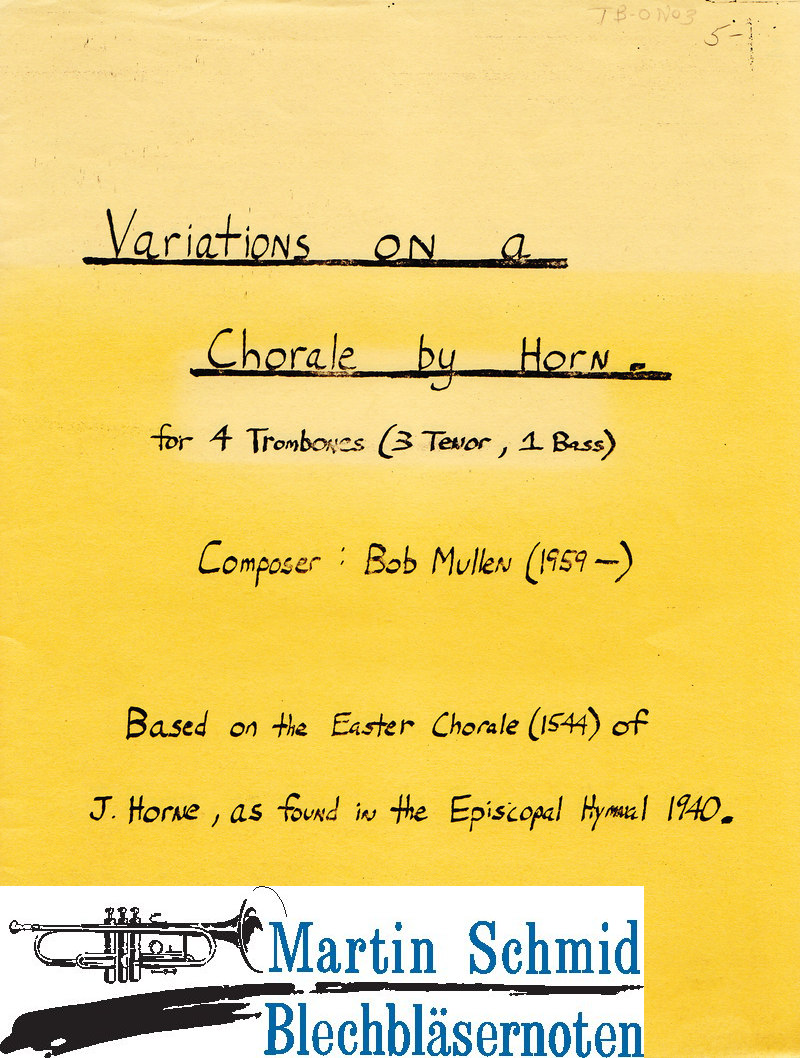 TB-ON03
5-
Variations on a
Chorale by Horn.
for 4 Trombones (3 Tenor, 1 Bass)
Composer : Bob Mullen (1959 —)
Based on the Easter Chorale (1544) of
J. Horne, as found in the Episcopal Hymnal 1940.
Martin Schmid
Blechbläsernoten